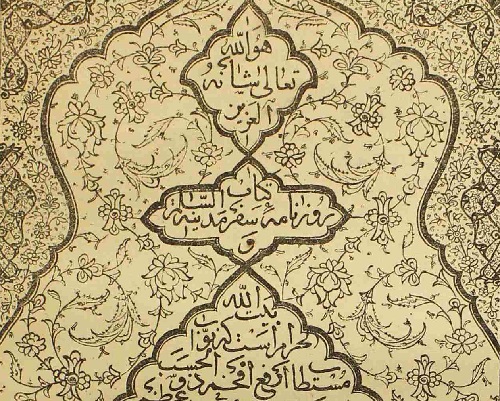 هو الله
تعالی شانه
العزیز
کتاب
روزنامه سفر مدینة السلام
و
بیت الله
الحرام است که نواب
مستطاب ارفع